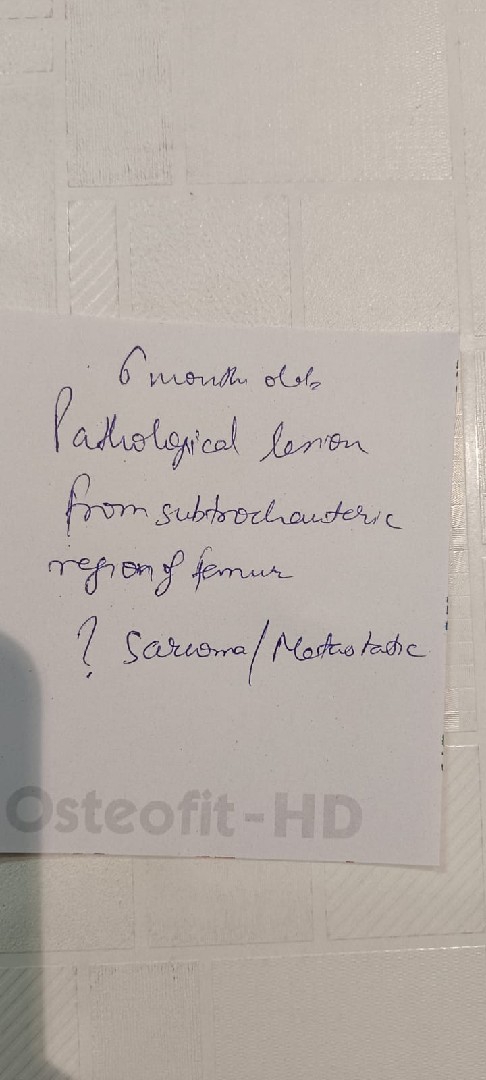 6 month old
Pathological lesion
from subtrochanteric
region of femur
? Sarcoma/Metastatic
Osteofit-HD